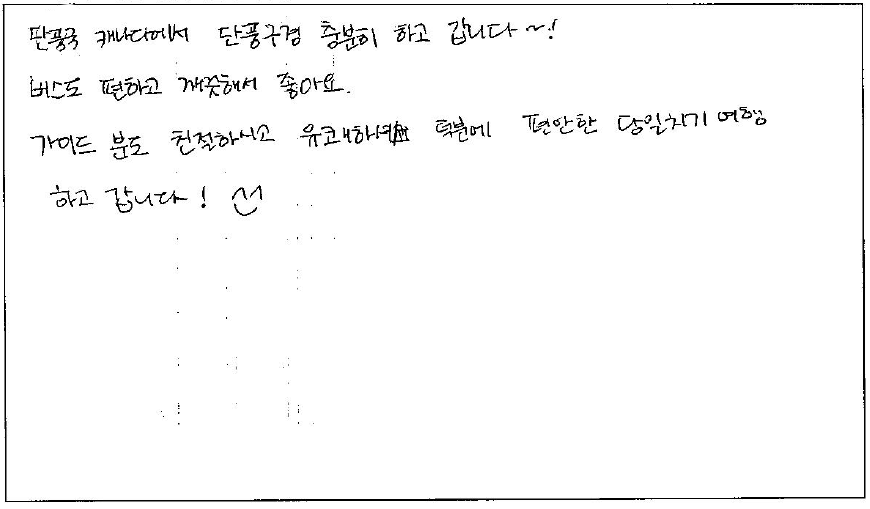 단풍국 캐나다에서 단풍구경 충분히 하고 갑니다~!
버스도 편하고 깨끗해서 좋아요.
가이드 분도 친절하시고 유쾌하셔 덕분에 편안한 당일치기 여행
하고 갑니다!